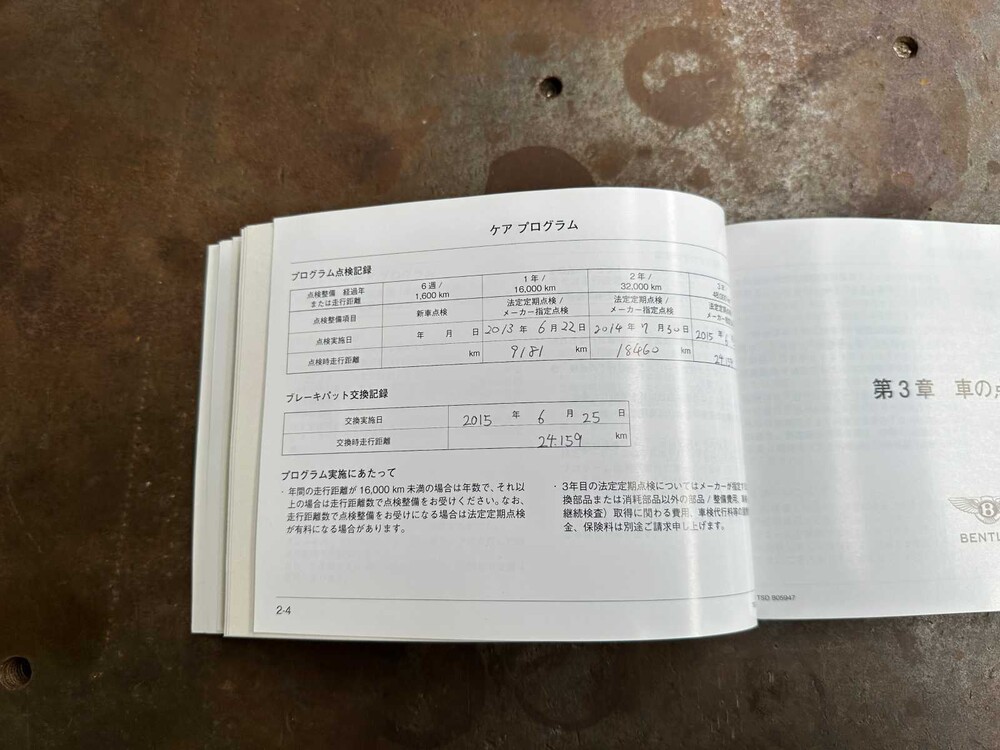 ケア プログラム
プログラム点検記録
点検整備 経過年 または走行距離 6週 / 1,600 km 1年 / 16,000 km 2年 / 32,000 km
点検整備項目 新車点検 法定定期点検 / メーカー指定点検 法定定期点検 / メーカー指定点検
点検実施日 年 月 日 2013 年 6 月 22 日 2014 年 7 月 30 日 2015 年
点検時走行距離 km 9181 km 18460 km
ブレーキパット交換記録
交換実施日 2015 年 6 月 25 日
交換時走行距離 24.159 km
プログラム実施にあたって
・年間の走行距離が 16,000 km 未満の場合は年数で、それ以
上の場合は走行距離数で点検整備をお受けください。なお、
走行距離数で点検整備をお受けになる場合は法定定期点検
が有料になる場合があります。
・3年目の法定定期点検についてはメーカーが指定
換部品または消耗部品以外の部品 / 整備費用
継続検査）取得に関わる費用、車検代行料等の
金、保険料は別途ご請求申し上げます。
2-4
第3章 車の
B
BENTL
TSD 905947